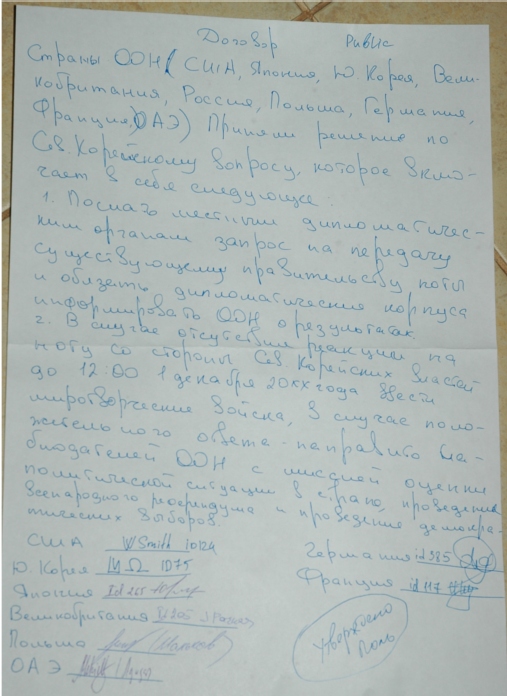 Договор РивИс
Страны ООН (США, Япония, Ю. Корея, Вели-
кобритания, Россия, Польша, Германия,
Франция, ОАЭ) Приняли решение по
Сев. Корейскому вопросу, которое вклю-
чает в себя следующее:
1. Послать местным дипломатичес-
ким органам запрос на передачу
существующему правительству ноты
и обязать дипломатические корпуса
информировать ООН о результатах
2. В случае отсутствия реакции на
ноту со стороны Сев Корейских властей
до 12:00 1 декабря 20xx года ввести
миротворческие войска, в случае поло-
жительного ответа - направить на-
блюдателей ООН с миссией оценки
политической ситуации в стране, проведения
всенародного референдума и проведение демокра-
тических выборов.
США WSmith
Ю. Корея ΜΩ 1075
Япония id 265
Великобритания id 205
Польша
ОАЭ
Германия id 385
Франция id 117
Утверждено